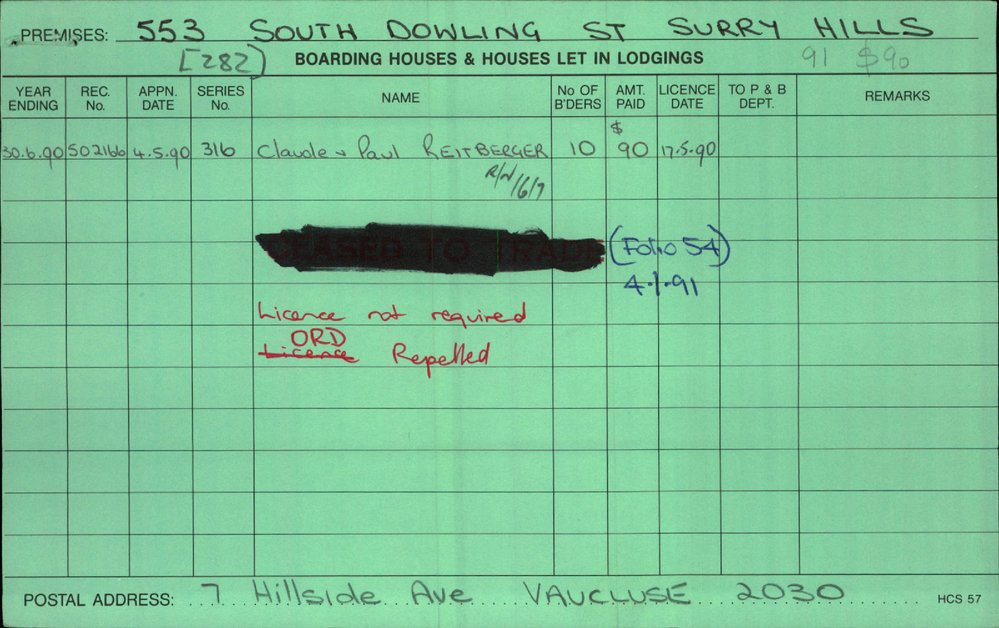 PREMISES: 553 SOUTH DOWLING ST SURRY HILLS
[282) BOARDING HOUSES & HOUSES LET IN LODGINGS 91 $90
YEAR ENDING REC. No. APPN. DATE SERIES No. NAME No OF B'DERS AMT. PAID LICENCE DATE TO P & B DEPT. REMARKS
$
30.6.90 502166 4.5.90 316 Claude & Paul REITBERGER 10 90 17.5.90
R/W/6/7
EASED TO TRADE (Folio 54)
4.1.91
Licence not required
ORD
Licence Repelled
POSTAL ADDRESS: 7 Hillside Ave VAUCLUSE 2030 HCS 57